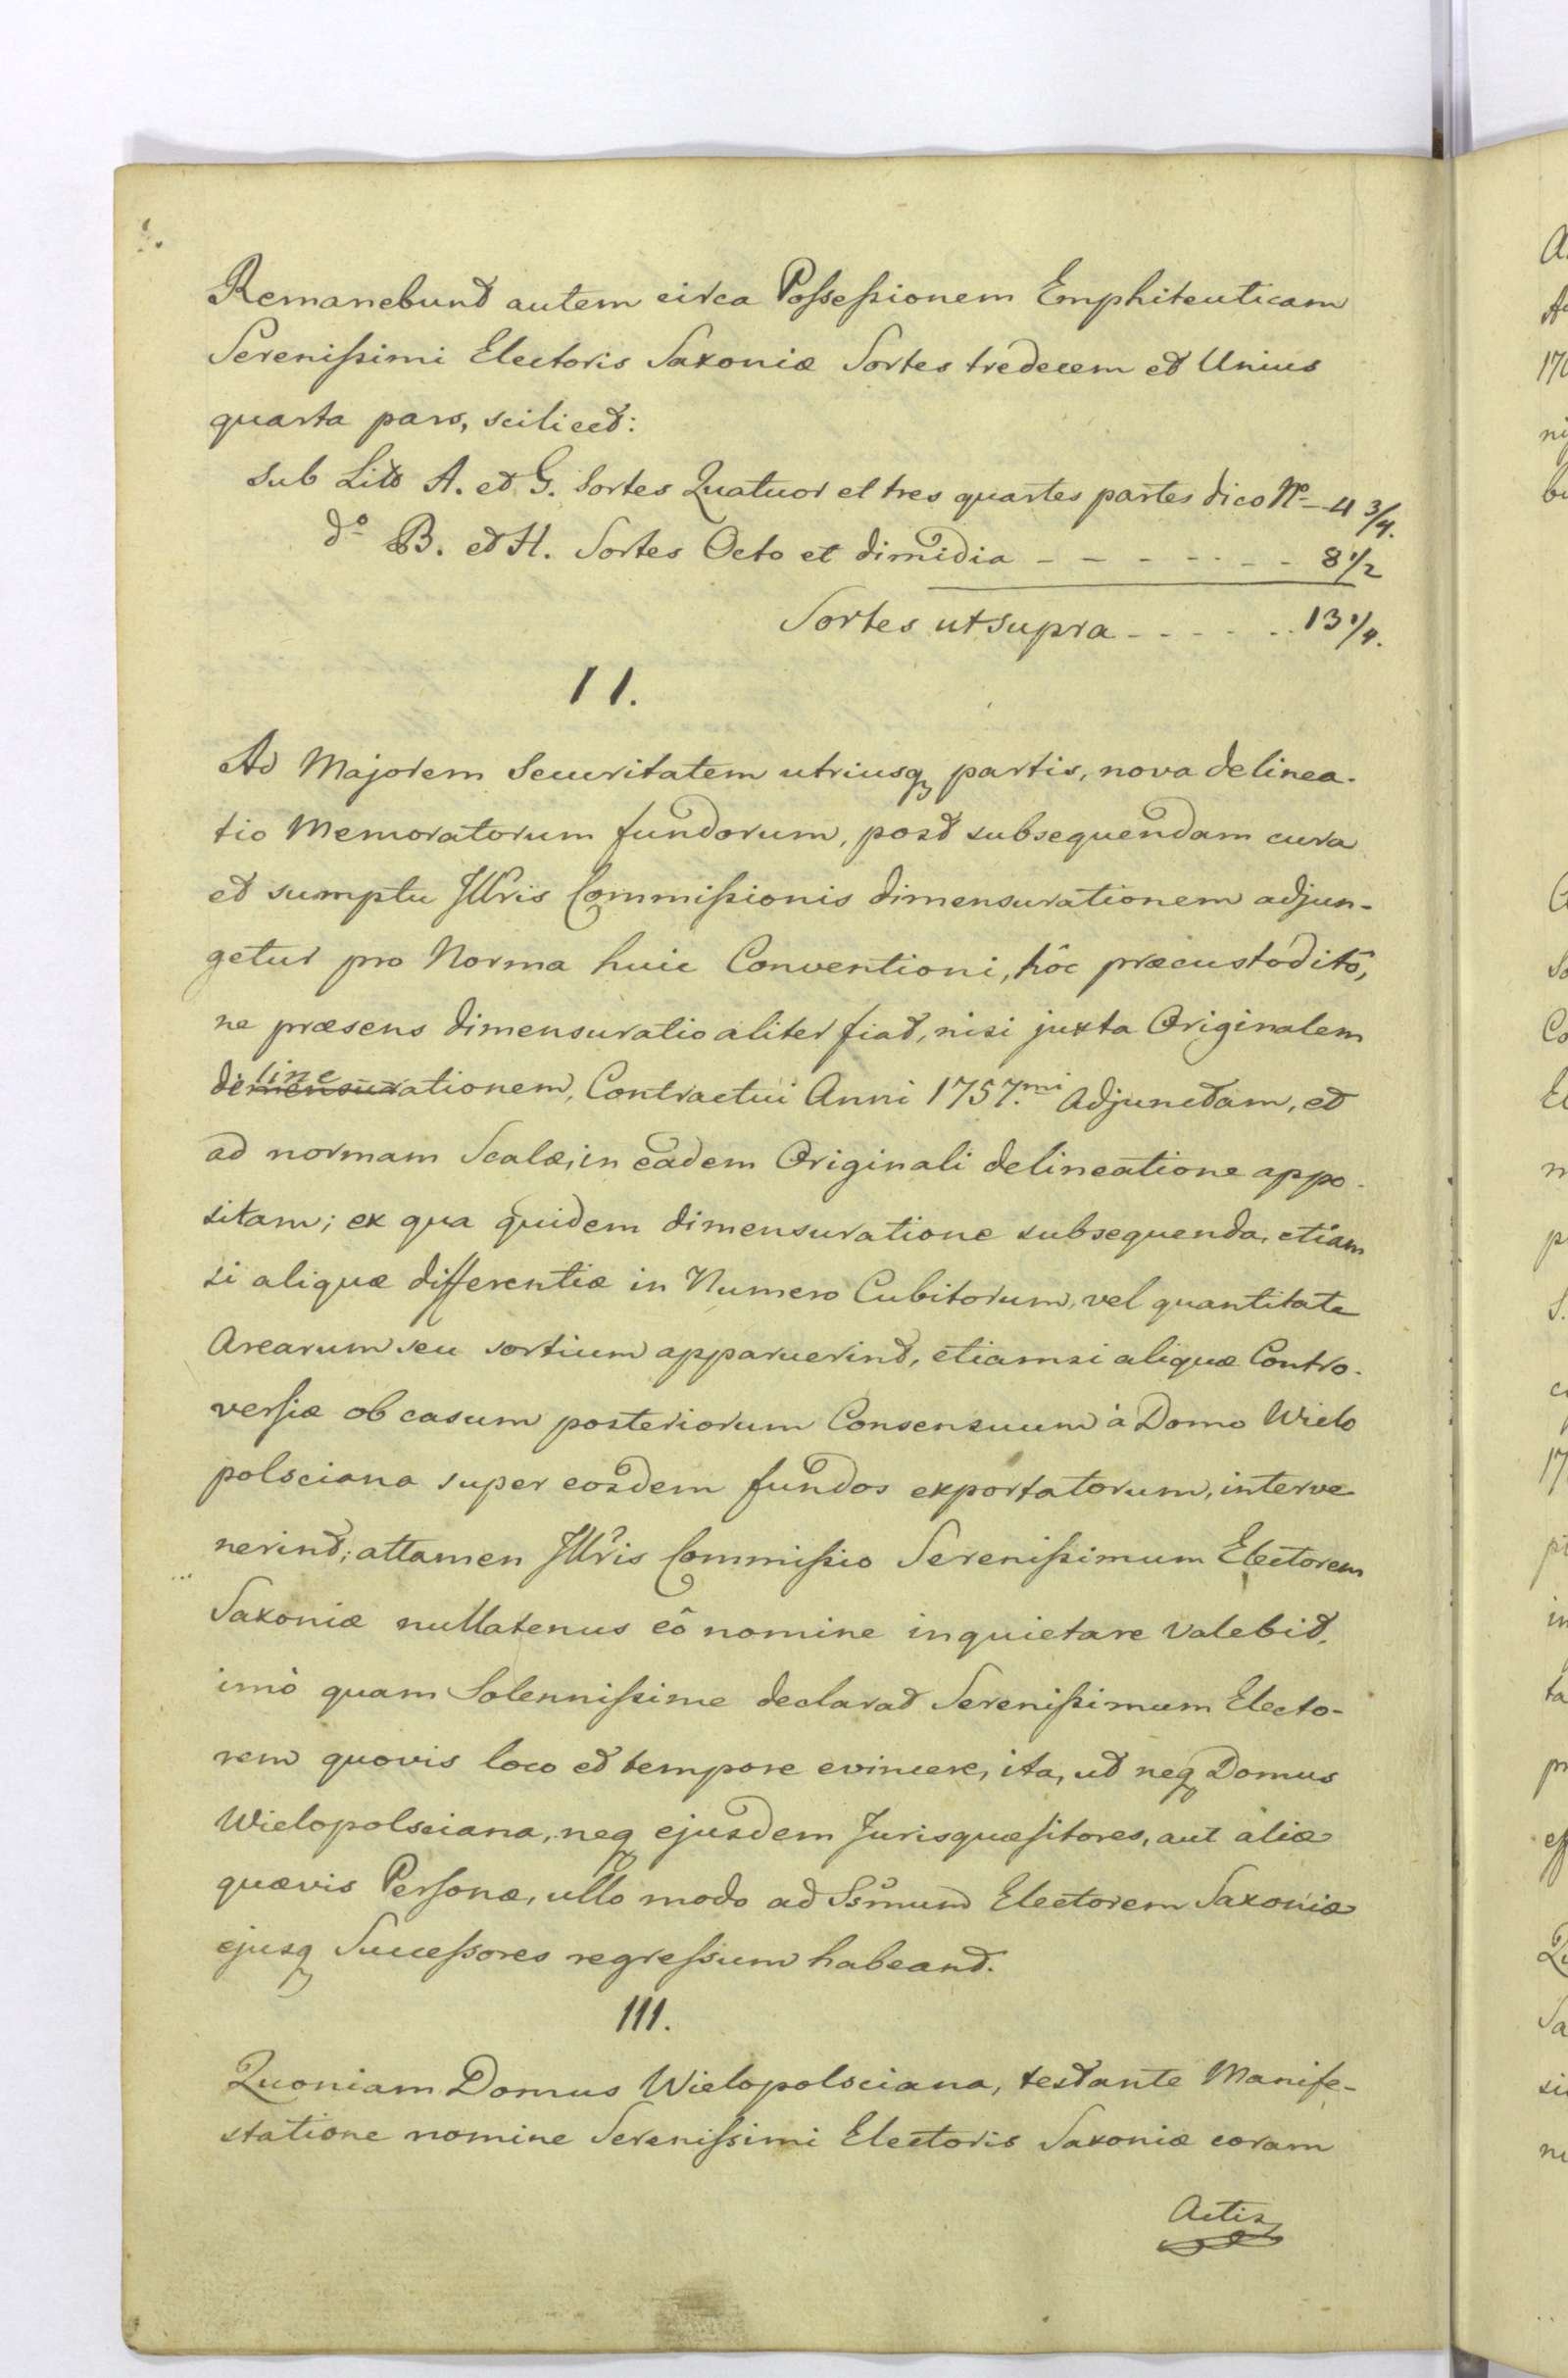 Remanebunt autem circa Possessionem Emphiteuticam
Serenissimi Electoris Saxoniæ Sortes tredecem et Unius
quarta pars, scilicet:
sub Litt A. et G. Sortes Quatuor et tres quartes partes dico No 4 3/4.
do B. et H. Sortes Octo et dimidia - - - - - - - 8 1/2
Sortes ut supra - - - - - - 13 1/4.
II.
Ad Majorem Securitatem utriusq partis, nova delinea-
tio Memoratorum fundorum, post subsequendam cura
et sumptu Jllris Commissionis dimensurationem adjun-
getur pro Norma huic Conventioni, hôc præcustoditô,
ne præsens dimensuratio aliter fiat, nisi juxta Originalem
dimensurationem line, Contractui Anni 1757.mi Adjunctam, et
ad normam Scalæ, in eadem Originali delineatione appo-
sitam; ex qua quidem dimensuratione subsequenda, etiam
si aliquæ differentiæ in Numero Cubitorum, vel quantitate
Arearum seu sortium apparuerint, etiamsi aliquæ Contro-
versiæ ob casum posteriorum Consensuum à Domo Wielo
polsciana super eosdem fundos exportatorum, interve
nerint; attamen Jllris Commissio Serenissimum Electorem
Saxoniæ nullatenus eô nomine inquietare Valebit,
imò quam Solennissime declarat Serenissimum Electo-
rem quovis loco et tempore evincere, ita, ut neq Domus
Wielopolsciana, neq ejusdem Jurisquæsitores, aut aliæ
quævis Personæ, ullo modo ad Ssmum Electorem Saxoniæ
ejusq Successores regressum habeant.
III.
Quoniam Domus Wielopolsciana, testante Manife-
statione nomine Serenissimi Electoris Saxoniæ coram
Actis